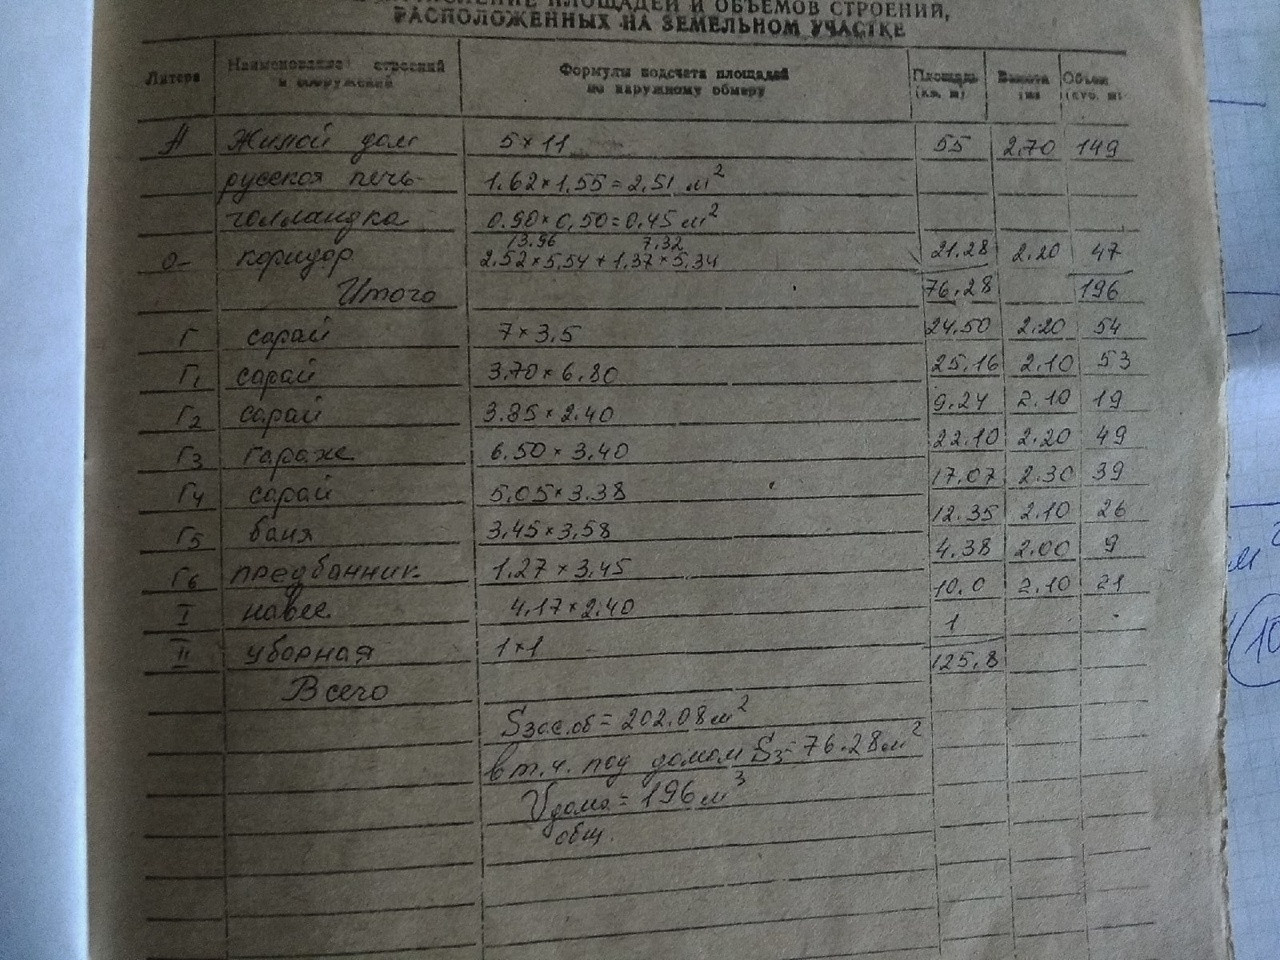 ПЛОЩАДЕЙ И ОБЪЕМОВ СТРОЕНИЙ,
РАСПОЛОЖЕННЫХ НА ЗЕМЕЛЬНОМ УЧАСТКЕ
Литера Наименование строений и сооружений Формулы подсчета площадей по наружному обмеру Площадь (кв. м) Высота Объем (куб. м)
А Жилой дом 5×11 55 2.70 149
русская печь 1.62×1.55=2.51 м²
голландка 0.90×0,50=0.45 м²
13.96 7.32
а коридор 2.52×5,54+1.37×5,34 21.28 2.20 47
Итого 76,28 196
Г сарай 7×3,5 24.50 2.20 54
Г1 сарай 3.70×6,80 25,16 2.10 53
Г2 сарай 3.85×2.40 9.24 2.10 19
Г3 гараж 6.50×3,40 22.10 2.20 49
Г4 сарай 5,05×3.38 17.07 2.30 39
Г5 баня 3,45×3,58 12.35 2.10 26
Г6 предбанник 1.27×3,45 4.38 2.00 9
I навес 4,17×2.40 10.0 2.10 21
II уборная 1×1 1
Всего 125,8
Sзас.об=202.08м²
в т.ч. под домом Sз=76.28м²
Vдома=196м³
общ.
м
10